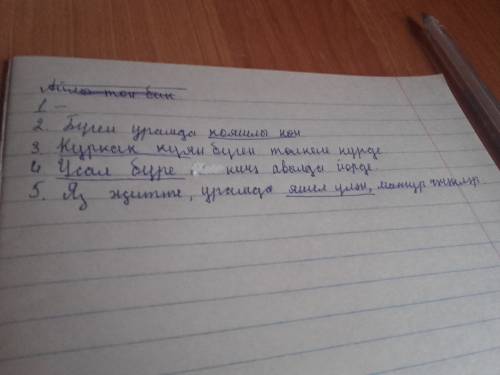 1 –
2. Бүген урамда кояшлы көн
3 Куркак куян бүген төлкене күрде
4 Усал бүре кичә авылда йөрде
5. Яз җитте, урамда яшел үлән, матур чәчәкләр